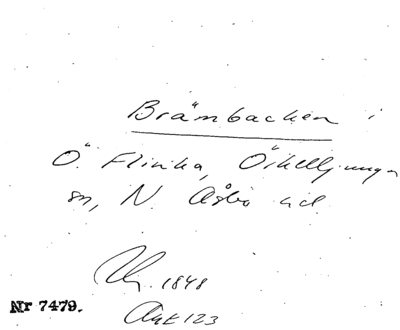 Brämbacken i
Ö. Flinka, Örkelljunga
sn, N. Åsbo hd.
1848
Nr 7479.
AktE 123